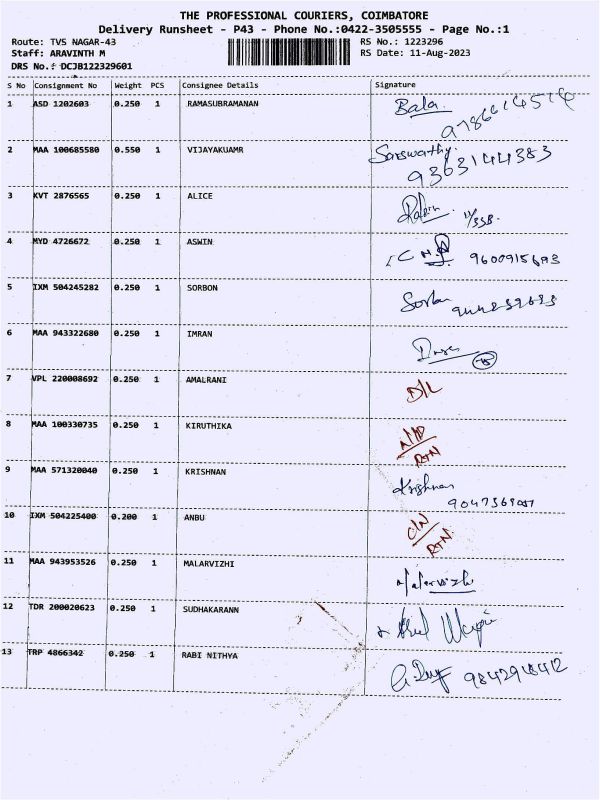 THE PROFESSIONAL COURIERS, COIMBATORE
Delivery Runsheet - P43 - Phone No.:0422-3505555 - Page No.:1
Route: TVS NAGAR-43 RS No.: 1223296
Staff: ARAVINTH M RS Date: 11-Aug-2023
DRS No.: DCJB122329601
S No Consignment No Weight PCS Consignee Details Signature
1 ASD 1202603 0.250 1 RAMASUBRAMANAN Bala
2 MAA 100685580 0.550 1 VIJAYAKUAMR Sarswathy
9363144383
3 KVT 2876565 0.250 1 ALICE
4 MYD 4726672 0.250 1 ASWIN
5 IXM 504245282 0.250 1 SORBON Sorbon
6 MAA 943322680 0.250 1 IMRAN
7 VPL 220008692 0.250 1 AMALRANI D/L
8 MAA 100330735 0.250 1 KIRUTHIKA
RTN
9 MAA 571320040 0.250 1 KRISHNAN Krishnan
10 IXM 504225400 0.200 1 ANBU
RTN
11 MAA 943953526 0.250 1 MALARVIZHI Malarvizhi
12 TDR 200020623 0.250 1 SUDHAKARANN
13 TRP 4866342 0.250 1 RABI NITHYA